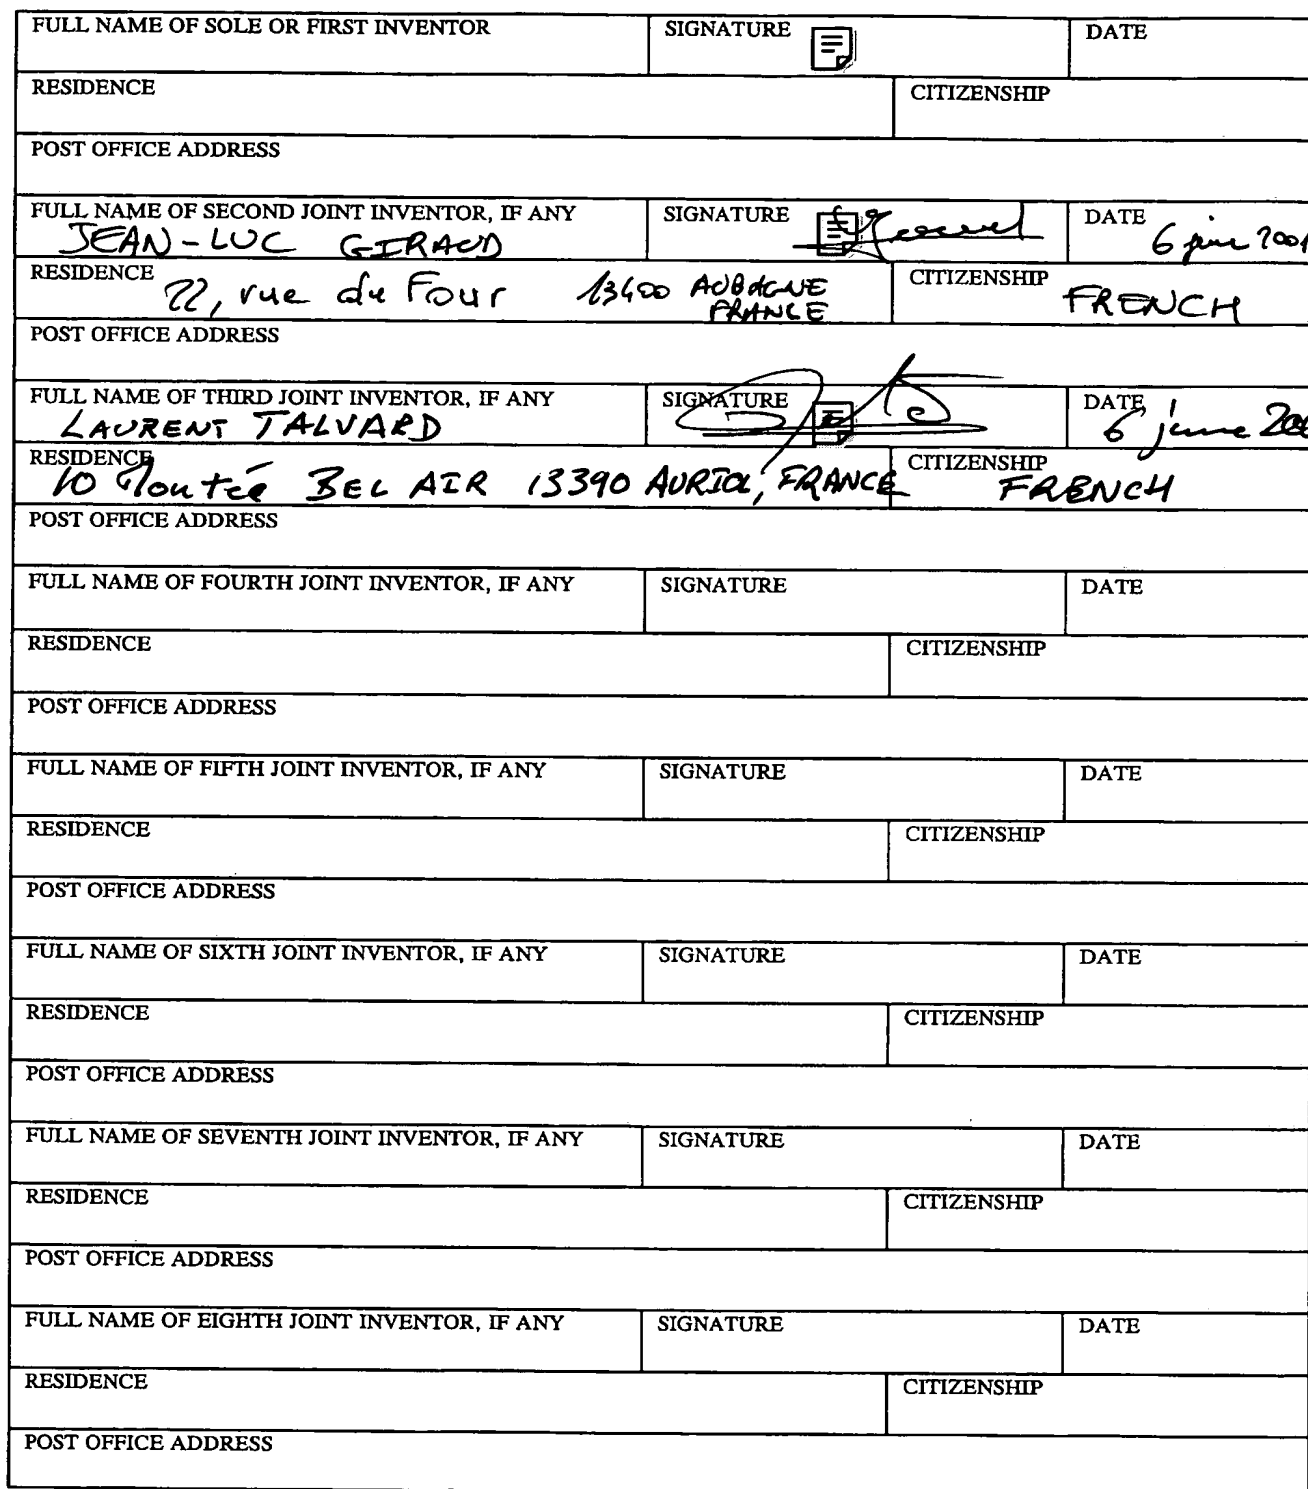 FULL NAME OF SOLE OR FIRST INVENTOR SIGNATURE DATE
RESIDENCE CITIZENSHIP
POST OFFICE ADDRESS
FULL NAME OF SECOND JOINT INVENTOR, IF ANY SIGNATURE DATE
JEAN-LUC GIRAUD 6 june 2001
RESIDENCE CITIZENSHIP
22, rue du Four 13400 AUBAGNE FRENCH
FRANCE
POST OFFICE ADDRESS
FULL NAME OF THIRD JOINT INVENTOR, IF ANY SIGNATURE DATE
LAURENT TALVARD 6 june
RESIDENCE CITIZENSHIP
10 Montée BEL AIR 13390 AURIOL, FRANCE FRENCH
POST OFFICE ADDRESS
FULL NAME OF FOURTH JOINT INVENTOR, IF ANY SIGNATURE DATE
RESIDENCE CITIZENSHIP
POST OFFICE ADDRESS
FULL NAME OF FIFTH JOINT INVENTOR, IF ANY SIGNATURE DATE
RESIDENCE CITIZENSHIP
POST OFFICE ADDRESS
FULL NAME OF SIXTH JOINT INVENTOR, IF ANY SIGNATURE DATE
RESIDENCE CITIZENSHIP
POST OFFICE ADDRESS
FULL NAME OF SEVENTH JOINT INVENTOR, IF ANY SIGNATURE DATE
RESIDENCE CITIZENSHIP
POST OFFICE ADDRESS
FULL NAME OF EIGHTH JOINT INVENTOR, IF ANY SIGNATURE DATE
RESIDENCE CITIZENSHIP
POST OFFICE ADDRESS